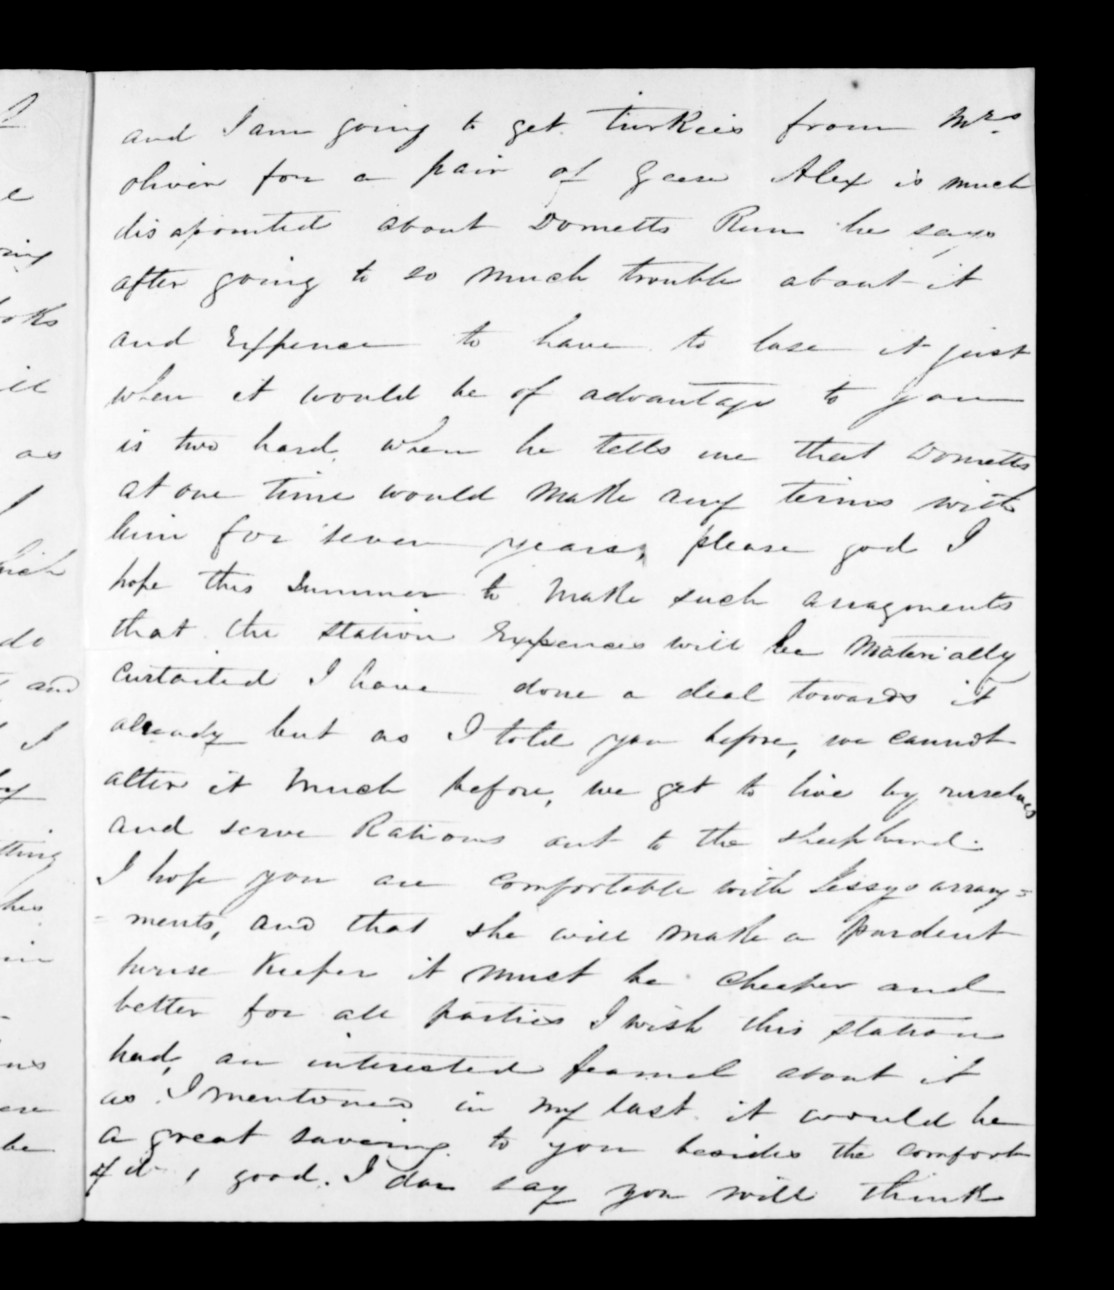 and I am going to get turkies from Mrs
oliver for a pair of Geese Alex is much
disapointed about Dometts Run he says
after going to so much trouble about it
and Expence to have to lose it just
when it would be of advantage to you
is two hard when he tells me that Dometts
at one time would make any terms with
him for seven years, please god I
hope this Summer to make such arragments
that the station Expences will be Materially
curtailed I have done a deal towards it
already but as I told you before, we cannot
alter it Much before, we get to live by ourselves
and serve Rations out to the shepherd.
I hope you are comfortable with Jessys arrang=
=ments, and that she will make a pardent
house Keeper it must be cheaper and
better for all parties I wish this station
had, an interested feamel about it
as I mentoned in my last it would be
a great saveing to you besides the comfort
good. I dar say you will think